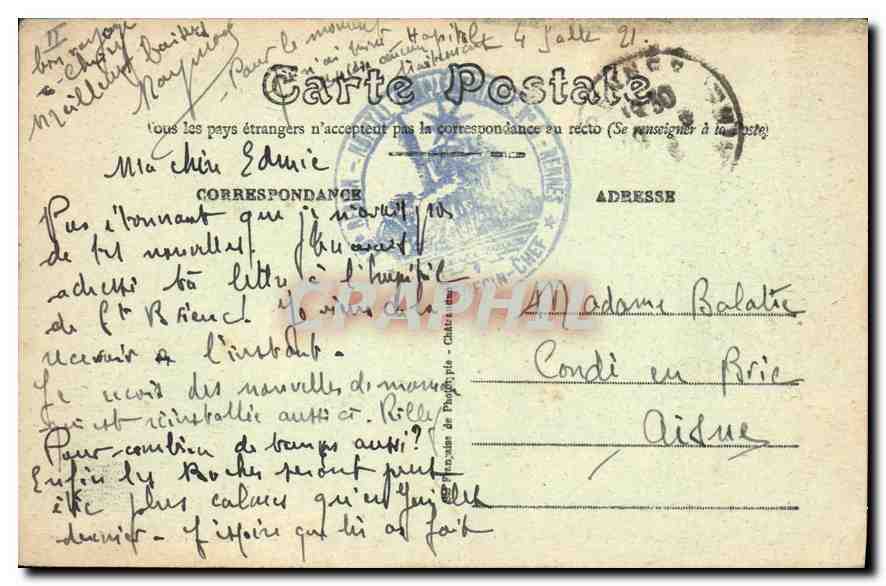 II
bon voyage
à Chézy
Meilleurs baisers
Raymond
Pour le moment
je n'ai suivi
aucun
traitement
Hôpital 4 Salle 21.
Carte Postale
Tous les pays étrangers n'acceptent pas la correspondance au recto (Se renseigner à la Poste)
RENNES
MÉDECIN-CHEF
CORRESPONDANCE
ADRESSE
Ma chère Edmée
Pas étonnant que je n'avais pas
de tes nouvelles. Tu avais
adressé ta lettre à l'hôpital
de St Brieuc. Je viens de la
recevoir à l'instant.
Je reçois des nouvelles de maman
qui est réinstallée aussi à Rilly
Pour combien de temps aussi?
Enfin les Boches seront peut
être plus calmes qu'en Juillet
dernier. J'espère que tu as fait
Française de Phototypie - Châteaudun
CPAPHIL
Madame Balatre
Condé en Brie
Aisne